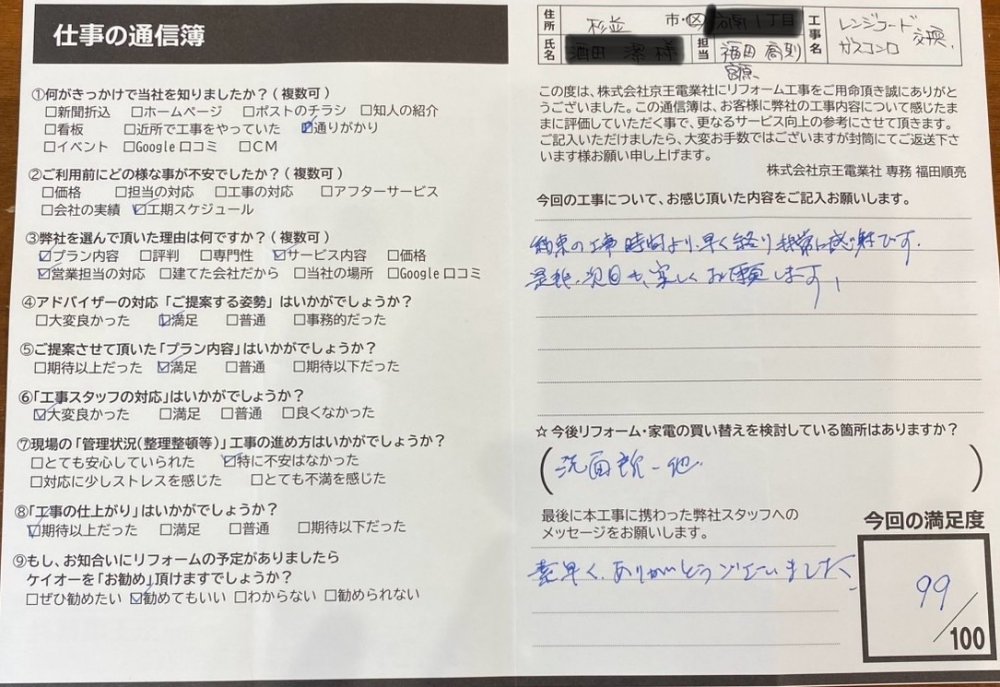 仕事の通信簿
①何がきっかけで当社を知りましたか？(複数可)
□新聞折込 □ホームページ □ポストのチラシ □知人の紹介
□看板 □近所で工事をやっていた ☑通りがかり
□イベント □Google口コミ □CM
②ご利用前にどの様な事が不安でしたか？(複数可)
□価格 □担当の対応 □工事の対応 □アフターサービス
□会社の実績 ☑工期スケジュール
③弊社を選んで頂いた理由は何ですか？(複数可)
☑プラン内容 □評判 □専門性 ☑サービス内容 □価格
☑営業担当の対応 □建てた会社だから □当社の場所 □Google口コミ
④アドバイザーの対応「ご提案する姿勢」はいかがでしょうか？
□大変良かった ☑満足 □普通 □事務的だった
⑤ご提案させて頂いた「プラン内容」はいかがでしょうか？
□期待以上だった ☑満足 □普通 □期待以下だった
⑥「工事スタッフの対応」はいかがでしょうか？
☑大変良かった □満足 □普通 □良くなかった
⑦現場の「管理状況(整理整頓等)」工事の進め方はいかがでしょうか？
□とても安心していられた ☑特に不安はなかった
□対応に少しストレスを感じた □とても不満を感じた
⑧「工事の仕上がり」はいかがでしょうか？
☑期待以上だった □満足 □普通 □期待以下だった
⑨もし、お知合いにリフォームの予定がありましたら
ケイオーを「お勧め」頂けますでしょうか？
□ぜひ勧めたい ☑勧めてもいい □わからない □勧められない
住所 杉並 市・区
氏名 様 担当 福田
工事名 レンジフード ガスコンロ 交換
この度は、株式会社京王電業社にリフォーム工事をご用命頂き誠にありがと
うございました。この通信簿は、お客様に弊社の工事内容について感じたま
まに評価していただく事で、更なるサービス向上の参考にさせて頂きます。
ご記入いただけましたら、大変お手数ではございますが封筒にてご返送下さ
います様お願い申し上げます。
株式会社京王電業社 専務 福田順亮
今回の工事について、お感じ頂いた内容をご記入お願いします。
約束の工事時間より、早く終り非常に感謝です。
是非、次回も、宜しくお願いします
☆今後リフォーム・家電の買い替えを検討している箇所はありますか？
(洗面所 他)
最後に本工事に携わった弊社スタッフへの
メッセージをお願いします。
素早く、ありがとうございました
今回の満足度
99/100